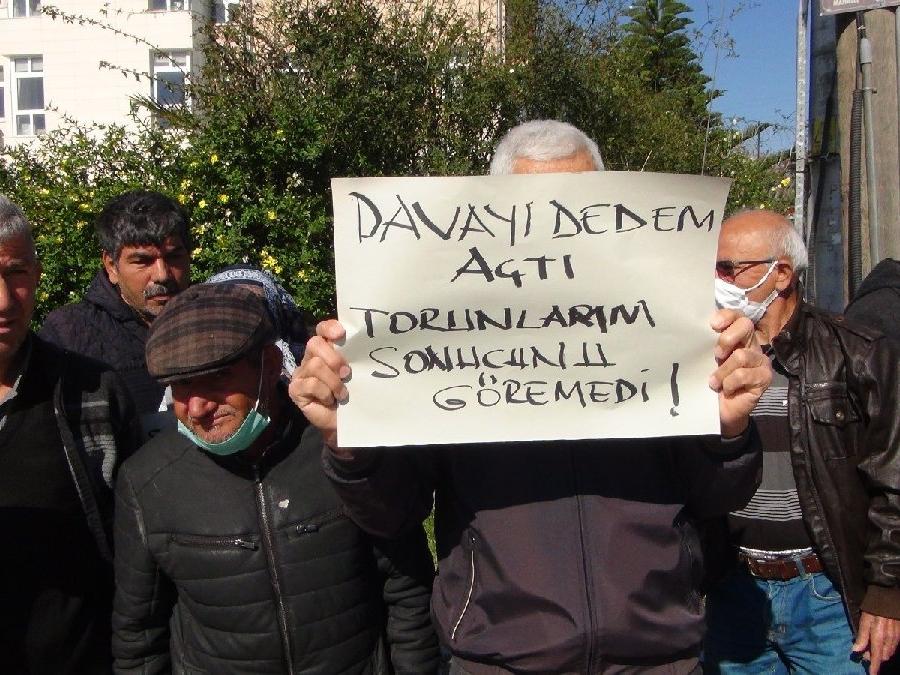 DAVAYI DEDEM
AÇTI
TORUNLARIM
SONUCUNU
GÖREMEDİ!